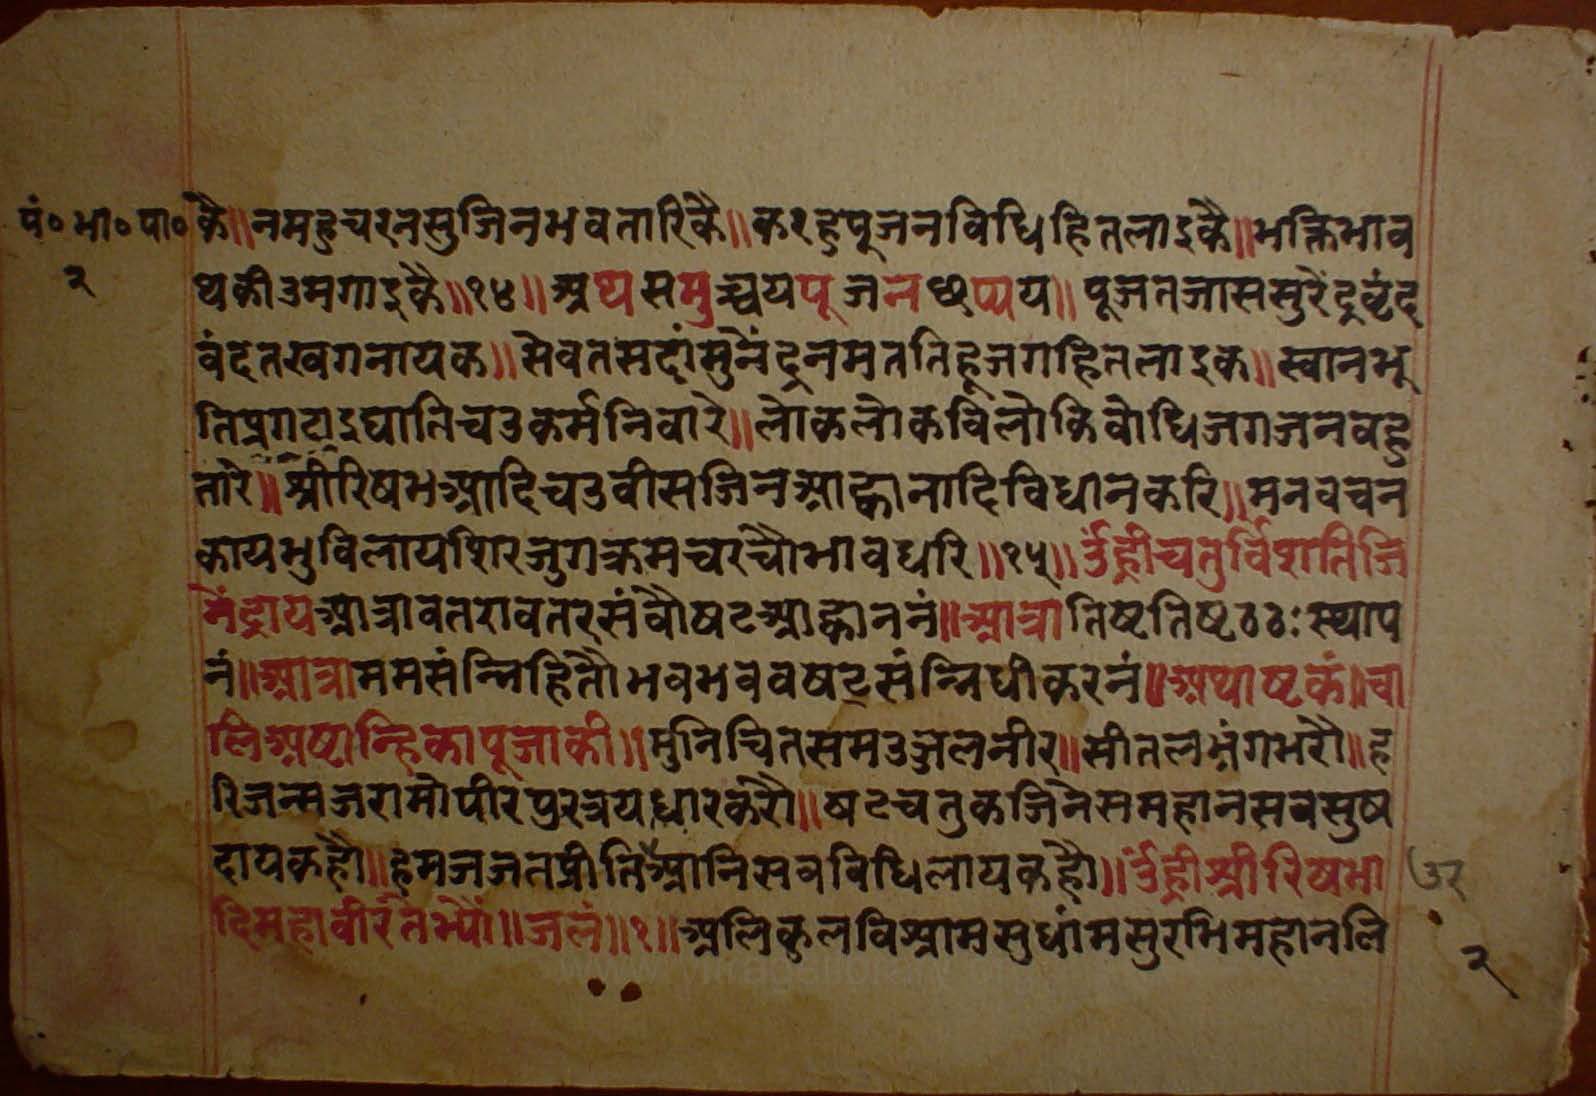 पं० भा० पा० कै॥ नमहुचरनसुजिनभवतारिकै॥ करहुपूजनविधिहितलाइकै॥ भक्तिभाव
२ थकीउमगाइकै॥१४॥ अथसमुच्चयपूजनछप्पय॥ पूजतजाससुरेंदृवृंद
वंदतखगनायक॥ सेवतसदांसुनेंदृनमततिहूजगहितलाइक॥ स्वानभू
तिप्रगटाइघातिचउकर्मनिवारे॥ लोकलोकविलोकिवोधिजगजनवहु
तारे॥ श्रीरिषभआदिचउवीसजिनआह्वानादिविधानकरि॥ मनवचन
कायभुविलायशिरजुगक्रमचरचौभावधरि॥१५॥ ॐह्रीचतुर्विंशतिजि
नेंद्रायआत्रावतरावतरसंवौषटआह्वाननं॥ आत्रातिष्टतिष्टठठः स्थाप
नं॥ आत्राममसंन्निहितौभवभववषट्संन्निधीकरनं॥ अथाष्टकं॥ चा
लिअष्टान्हिकापूजाकी॥ मुनिचितसमउज्जलनीर॥ सीतलभृंगभरौ॥ ह
रिजन्मजरामोपीरपुरत्रयधारकरौ॥ षटचतुकजिनेसमहानसवसुष
दायकहौ॥ हमजजतप्रीतिआनिसवविधिलायकहौ॥ ॐह्रीश्रीरिषभा
दिमहावीरंतेभ्यौ॥ जलं॥१॥ अलिकुलविश्रामसुधांमसुरभिमहानलि
२